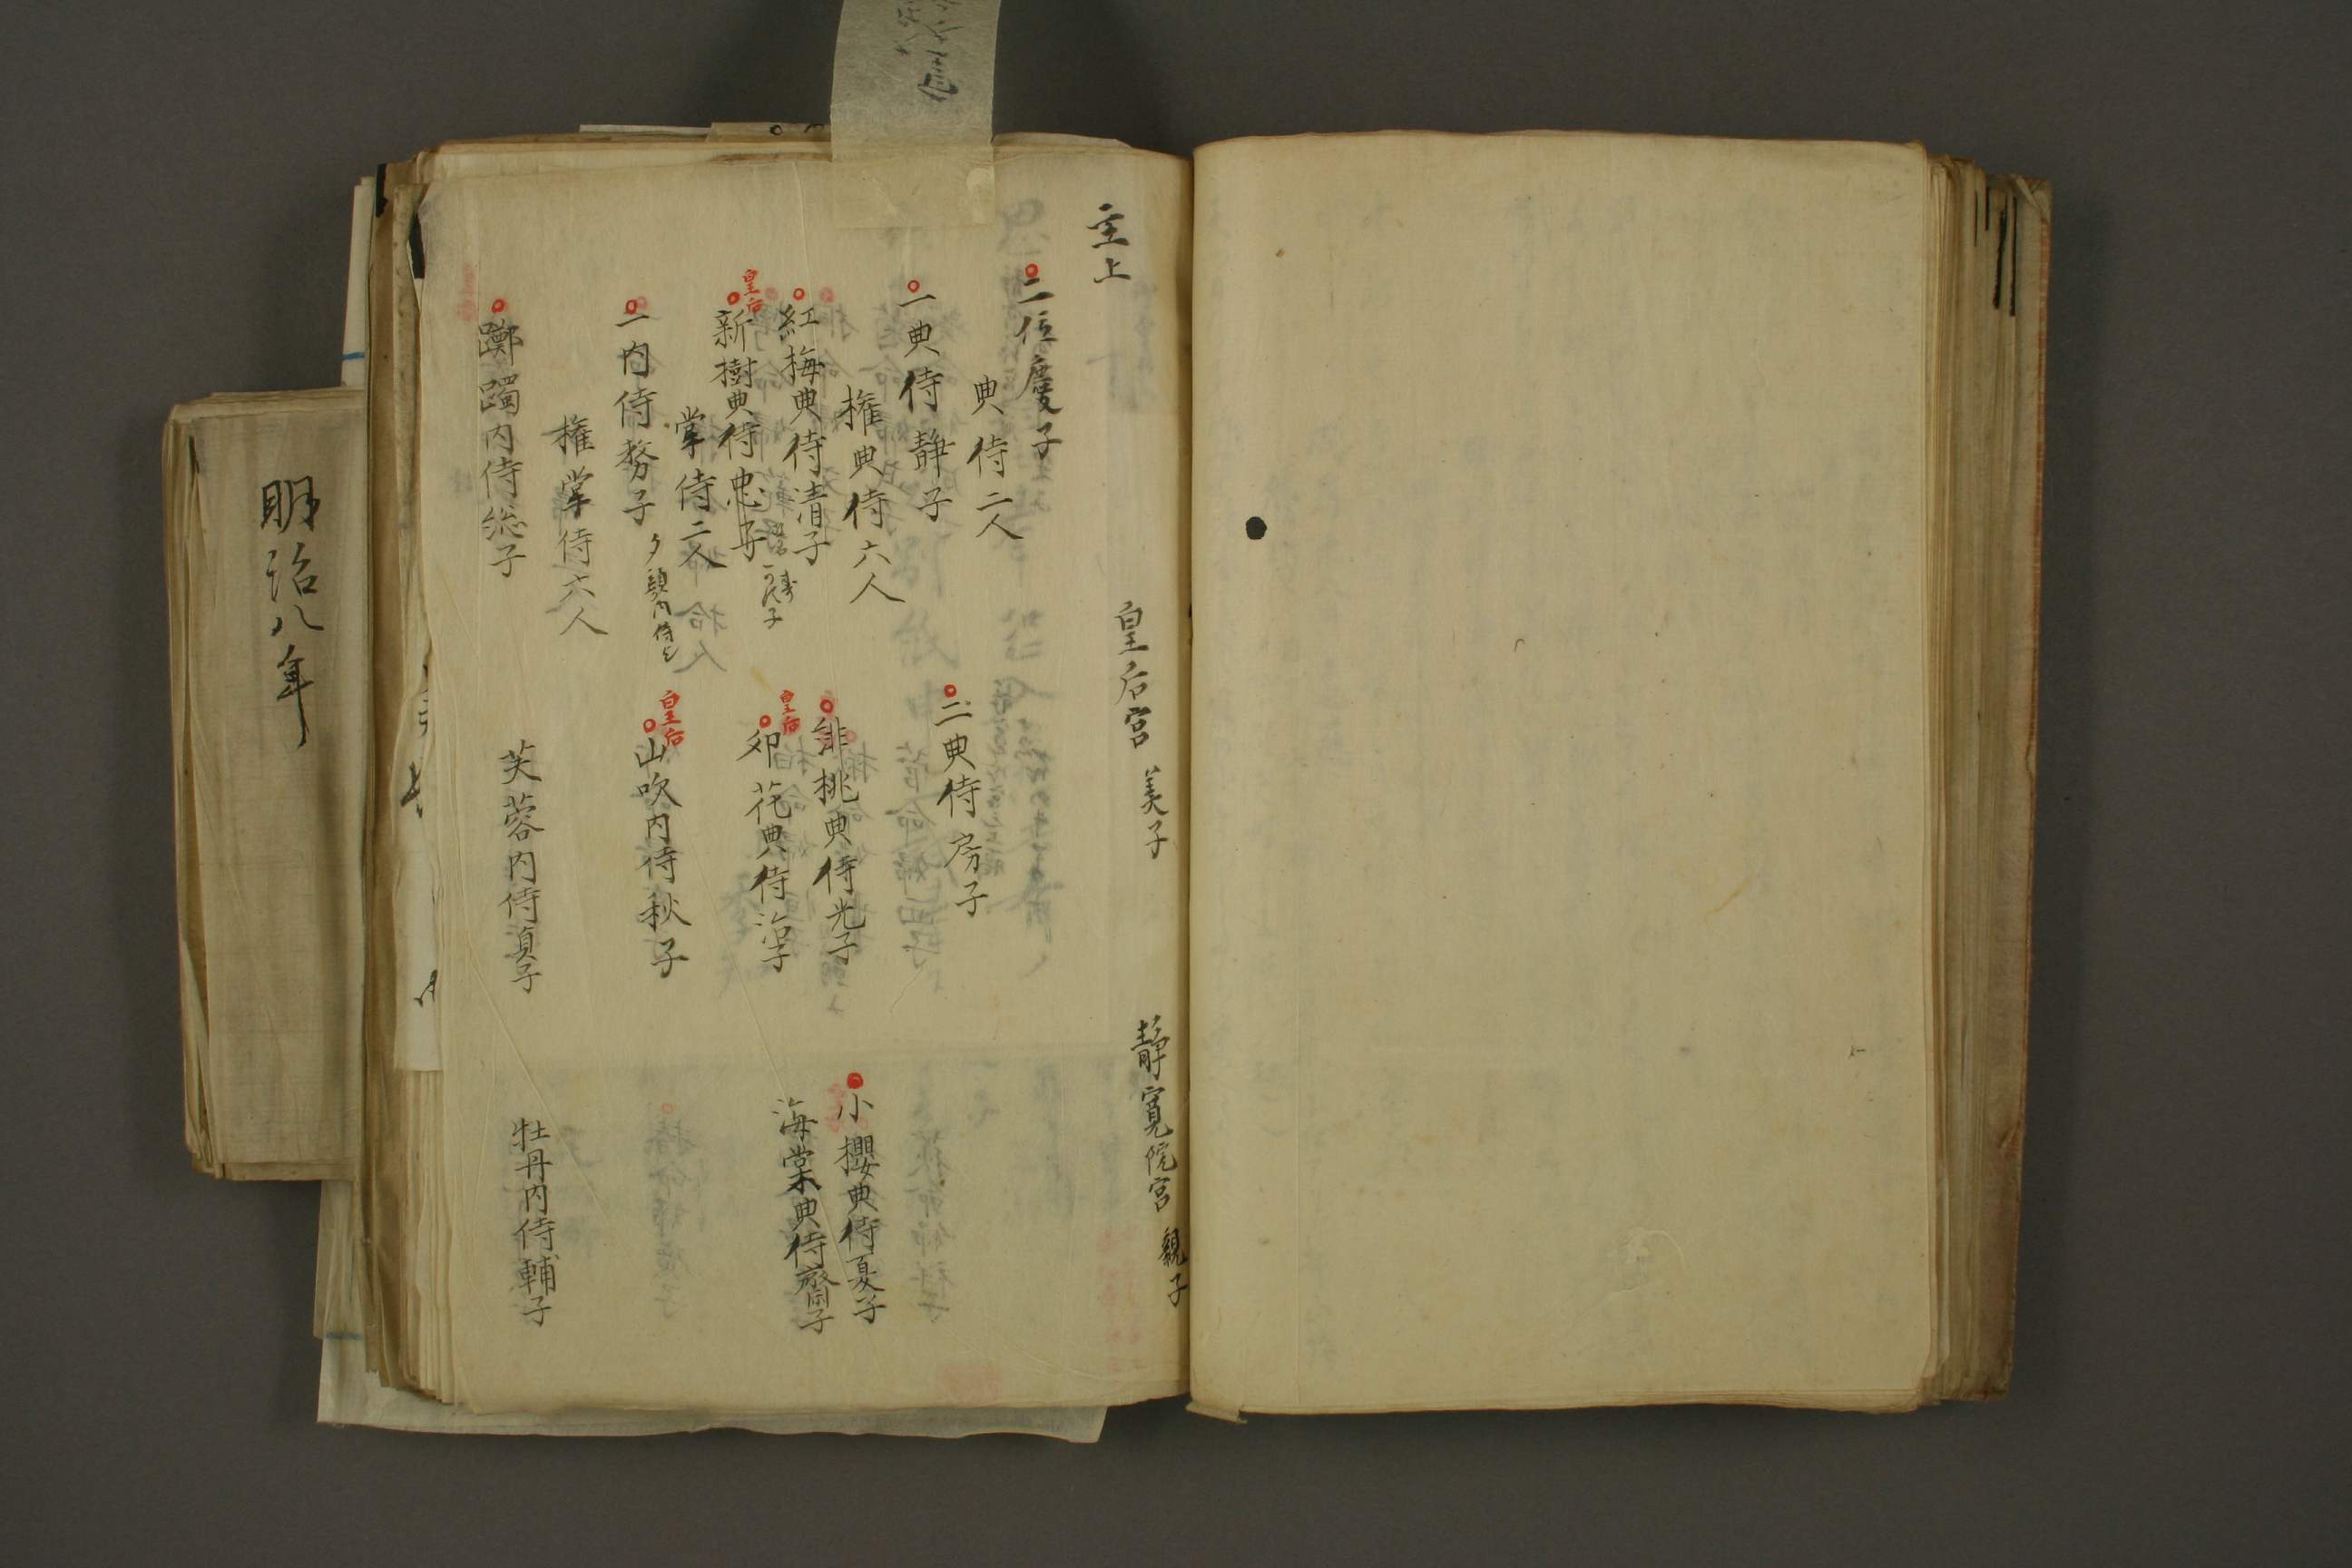 主上
皇后宮 美子
静寛院宮 親子
二位慶子
典侍二人
一典侍静子
二典侍房子
権典侍六人
紅梅典侍清子
緋桃典侍光子
小櫻典侍夏子
皇后
新樹典侍忠子
皇后
卯花典侍治子
海棠典侍齋子
掌侍二人
一内侍努子
皇后
山吹内侍秋子
権掌侍六人
躑躅内侍総子
芙蓉内侍貞子
牡丹内侍輔子
明治八年